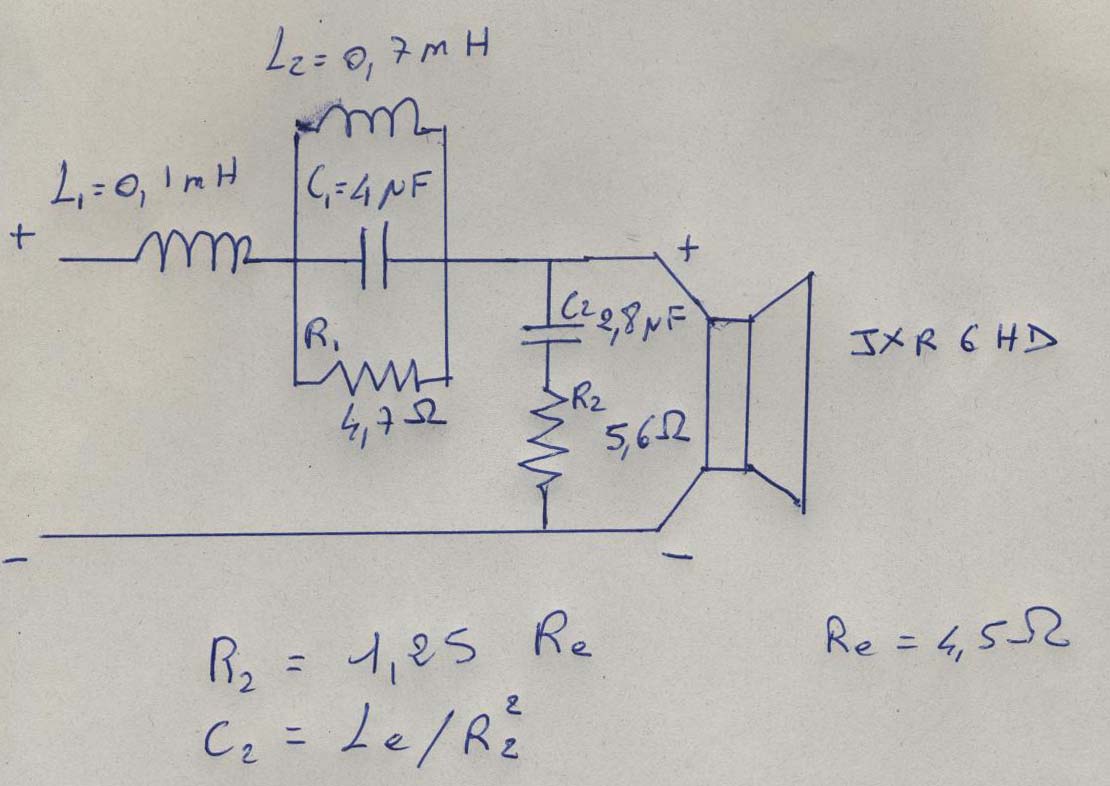 L₂=0,7mH
L₁=0,1mH
C₁=4μF
+
+
C₂ 2,8μF
JXR 6 HD
R₁
4,7Ω
R₂
5,6Ω
-
-
R₂ = 1,25 Re
Re = 4,5Ω
C₂ = Le/R₂²